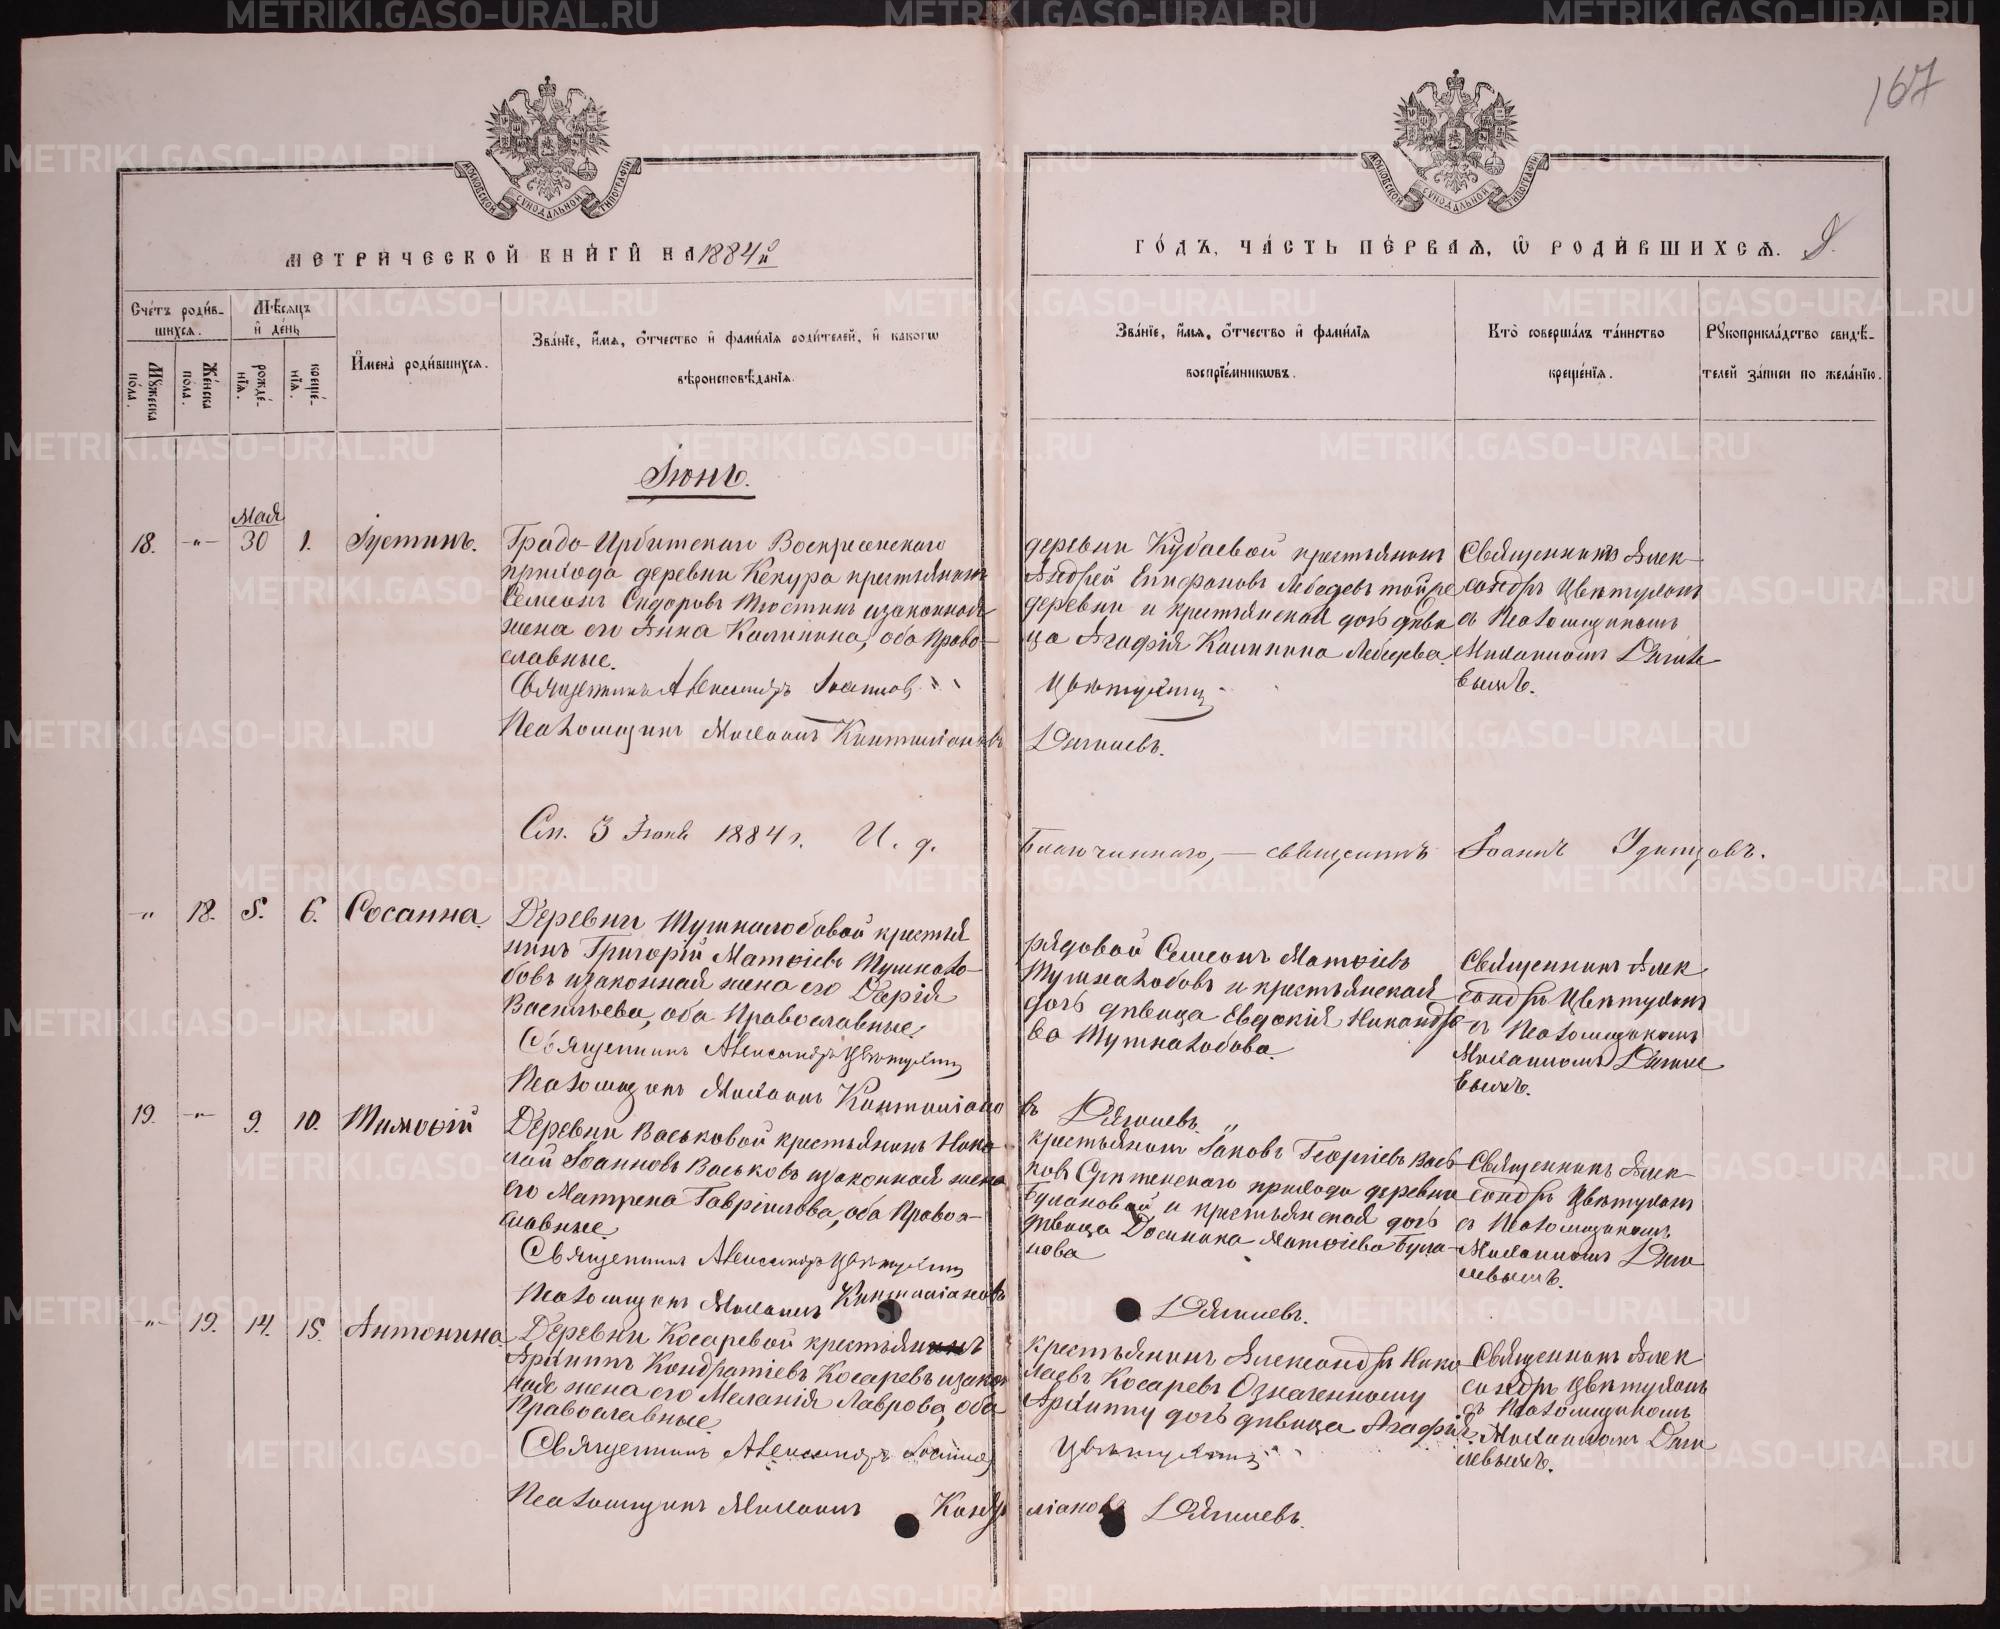 167
МОСКОВСКОЙ СѴНОДАЛЬНОЙ ТИПОГРАФІИ
МОСКОВСКОЙ СѴНОДАЛЬНОЙ ТИПОГРАФІИ
МЕТРИЧЕСКОЙ КНИГИ НА 1884й
ГОДЪ, ЧАСТЬ ПЕРВАЯ, Ѡ РОДИВШИХСЯ.
Счетъ родив-
шихся.
Мужеска пола.
Женска пола.
Мѣсяцъ
и день
рожде-
нія.
креще-
нія.
Имена родившихся.
Званіе, имя, отчество и фамилія родителей, и какогѡ
вѣроисповѣданія.
Званіе, имя, отчество и фамилія
воспріемникѡвъ.
Кто совершалъ таинство
крещенія.
Рукоприкладство свидѣ-
телей записи по желанію.
Іюнь.
18. -"- Мая 30 1. Іустинъ.
Градо-Ирбитскаго Воскресенскаго
прихода деревни Кекура крестьянинъ
Семеонъ Сидоровъ изаконная
жена его Анна Калинина, оба Право-
славные.
Священникъ Александръ Іоанновъ
Псаломщикъ Михаилъ
деревни Кубаевой крестьянинъ
Андрей Епифановъ Лебедевъ тойже
деревни и крестьянская дочь дѣви
ца Агафія Калинина Лебедева.
Цвѣтухинъ
Дягилевъ.
Священникъ Алек-
сандръ Цвѣтухинъ
съ Псаломщикомъ
Михаиломъ Дягиле
вымъ.
См. 3 Іюня 1884 г. И. д.
Благочиннаго, — священникъ Іоаннъ Удинцовъ.
-"- 18. 5. 6. Сосанна.
Деревни Тушналобовой крестья
нинъ Григорій Матѳіевъ Тушнало-
бовъ изаконная жена его Дарія
Васильева, оба Православные.
Священникъ Александръ Цвѣтухинъ
Псаломщикъ Михаилъ
рядовой Семеонъ Матѳіевъ
Тушналобовъ и крестьянская
дочь дѣвица Евдокія Никандро
ва Тушналобова.
въ Дягилевъ.
Священникъ Алек
сандръ Цвѣтухинъ
съ Псаломщикомъ
Михаиломъ Дягиле
вымъ.
19. -"- 9. 10. Тимоѳій
Деревни Васьковой крестьянинъ Нико
лай Іоанновъ Васьковъ изаконная жена
его Матрена Гавріилова, оба Право-
славные.
Священникъ Александръ Цвѣтухинъ
Псаломщикъ Михаилъ
крестьянинъ Іаковъ Георгіевъ Вась-
ковъ Срѣтенскаго прихода деревни
Булановой и крестьянская дочь
дѣвица Матѳіева Була-
нова
Дягилевъ.
Священникъ Алек-
сандръ Цвѣтухинъ
съ Псаломщикомъ
Михаиломъ Дяги
левымъ.
-"- 19. 14. 15. Антонина.
Деревни Косаревой крестьянинъ
Архипъ Кондратіевъ Косаревъ изакон
ная жена его Меланія Лаврова, оба
Православные.
Священникъ Александръ Іоаннов
Псаломщикъ Михаилъ
крестьянинъ Александръ Нико
лаевъ Косаревъ Означенному
Архиппу дочь дѣвица Агафія.
Цвѣтухинъ
Дягилевъ.
Священникъ Алек
сандръ Цвѣтухинъ
съ Псаломщикомъ
Михаиломъ Дяги
левымъ.